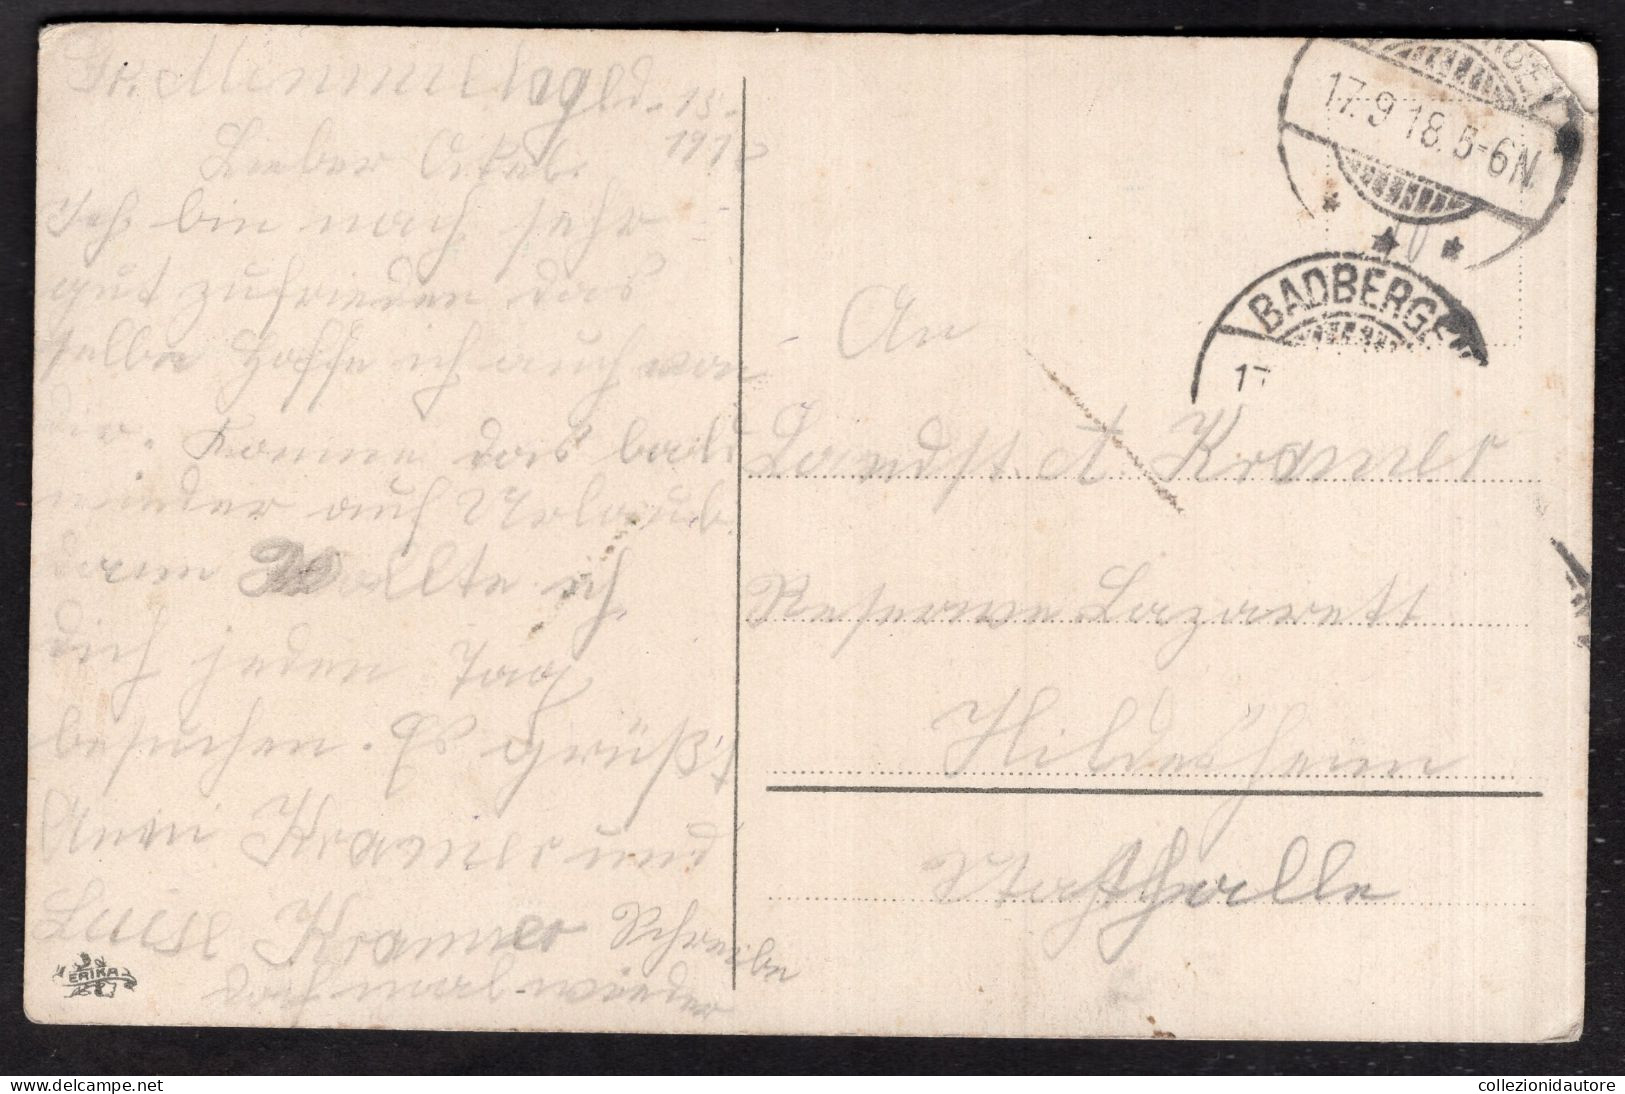 Gr. Mimmelage d. 15.
1918
Lieber Onkel.
Ich bin noch sehr
gut zufrieden das
selbe hoffe ich auch von
dir. Komme das bald
wieder auf Urlaub
dann wollte ich
dich jeden Tag
besuchen. Es grüßt
Anni Kramer und
Luise Kramer Schreibe
doch mal wieder
ERIKA
17.9.18.5-6N.
BADBERGEN
17
An
Landst. A. Kramer
Reserve Lazarett
Hildesheim
Stadthalle
collezionidautore